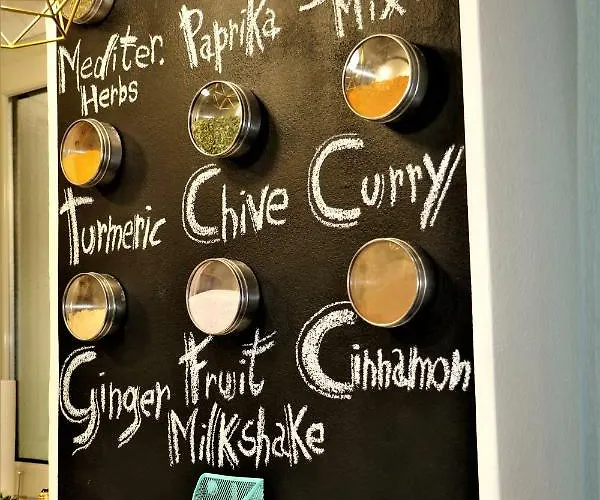 Mediter. Paprika Mix
Herbs
Turmeric Chive Curry
Ginger Fruit Cinnamon
Milkshake